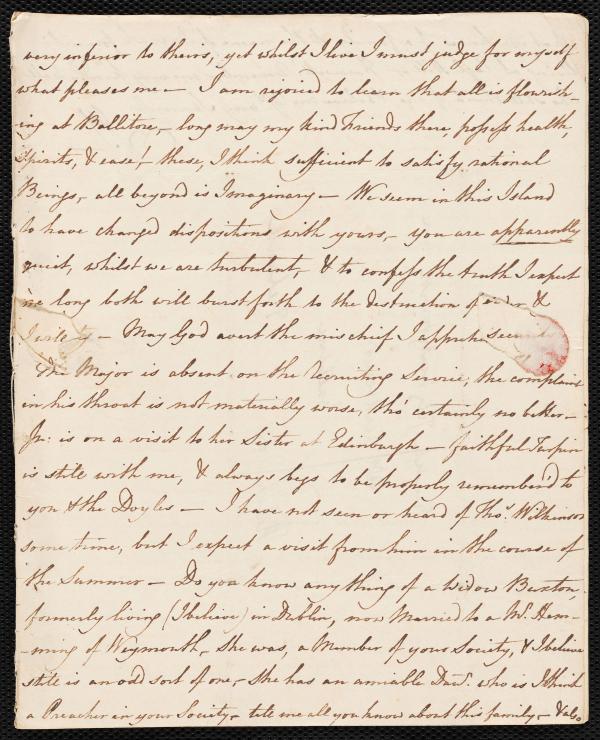 very inferior to theirs, yet whilst I live I must judge for myself
what pleases me — I am rejoiced to learn that all is flourish-
ing at Ballitore, — long may my kind Friends there, possess health,
Spirits, & ease! — these, I think sufficient to satisfy rational
Beings, all beyond is Imaginary — We seem in this Island
to have changed dispositions with yours, — you are apparently
quiet, whilst we are turbulent, — & to confess the truth I expect
ere long both will burst forth to the destruction of order &
— May God avert the mischief I apprehend
The Major is absent on the recruiting Service, the complaint
in his throat is not materially worse, tho' certainly no better —
Jn: is on a visit to her Sister at Edinburgh — faithful Turpin
is still with me, & always begs to be properly remember'd to
you & the Doyles — I have not seen or heard of Thos. Wilkinson
some time, but I expect a visit from him in the course of
the Summer — Do you know any thing of a Widow Burton
formerly living (I believe) in Dublin, now Married to a Mr. Ham-
-ming of Weymouth, she was, a Member of your Society, & I believe
still is an odd sort of one, — she has an amiable Daur. who is I think
a Preacher in your Society — tell me all you know about this family, — & also